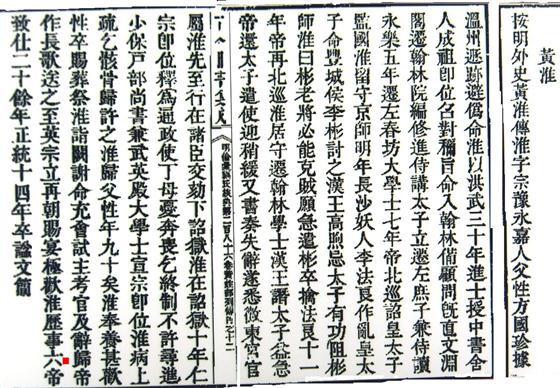 黃淮
按明外史黃淮傳淮字宗豫永嘉人父性方國珍據
溫州遁跡避偽命淮以洪武三十年進士授中書舍
人成祖即位名對稱旨命入翰林備顧問既直文淵
閣遷翰林院編修進侍講太子立遷左庶子兼侍讀
永樂五年遷左春坊大學士七年帝北巡詔皇太子
監國淮留守京師明年長沙妖人李法良作亂皇太
子命豐城侯李彬討之漢王高煦忌太子有功阻彬
師淮曰彬老將必能克賊願急遣彬卒擒法良十一
年帝再北巡淮居守遷翰林學士漢王譖太子益急
帝還太子遣使迎稍緩又書奏失辭遂悉徵東宮官
屬淮先至行在諸臣交劾下詔獄淮在詔獄十年仁
宗即位釋為通政使丁母憂奔喪乞終制不許尋進
少保戶部尚書兼武英殿大學士宣宗即位淮病上
疏乞骸骨歸許之淮歸父性年九十矣淮奉養甚歡
性卒賜葬祭淮詣闕謝命充會試主考官及辭歸帝
作長歌送之至英宗立再朝賜宴極歡淮歷事六帝
致仕二十餘年正統十四年卒諡文簡